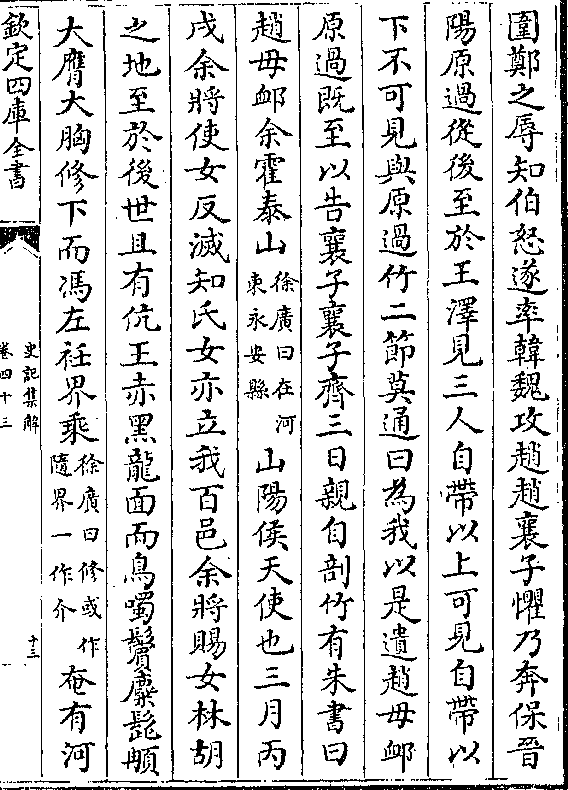 圍鄭之辱知伯怒遂率韓魏攻趙趙襄子懼乃奔保晉
陽原過從後至於王澤見三人自帶以上可見自帶以
下不可見與原過竹二節莫通曰為我以是遺趙毋卹
原過既至以告襄子襄子齊三日親自剖竹有朱書曰
趙毋卹余霍泰山徐廣曰在河東永安縣山陽侯天使也三月丙
戌余將使女反滅知氏女亦立我百邑余將賜女林胡
之地至於後世且有伉王赤黑龍面而鳥噣鬢麋髭䫇
大膺大胸修下而馮左袵界乘徐廣曰修或作隨界一作介奄有河
欽定四庫全書
史記集解
卷四十三
十三